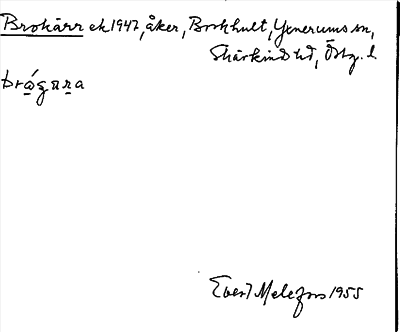 Brokärr ek 1947, åker, Borkhult, Yxnerums sn,
Skärkinds hd, Östg. l.
Evert Melefors 1955